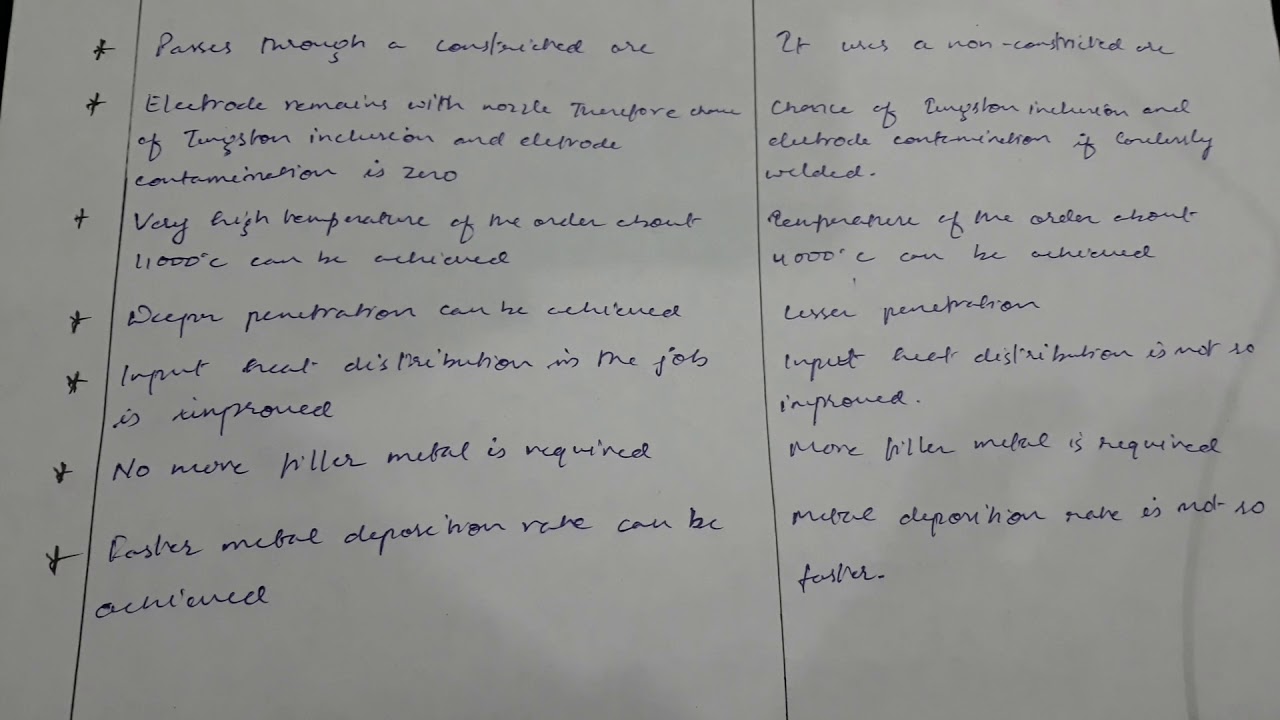 * Passes through a constricted arc
It uses a non-constricted arc
* Electrode remains with nozzle Therefore chance
of Tungston inclusion and eletrode
contamination is zero
Chance of Tungston inclusion and
electrode contamination if
welded.
+ Very high temperature of the order about
11000°c can be achieved
temperature of the order about
4000°c can be achieved
* Deeper penetration can be achieved
Lesser penetration
* Input heat distribution in the job
is improved
Input heat distribution is not so
improved.
* No more filler metal is required
More filler metal is required
* Faster metal deposition rate can be
achieved
Metal deposition rate is not so
faster.